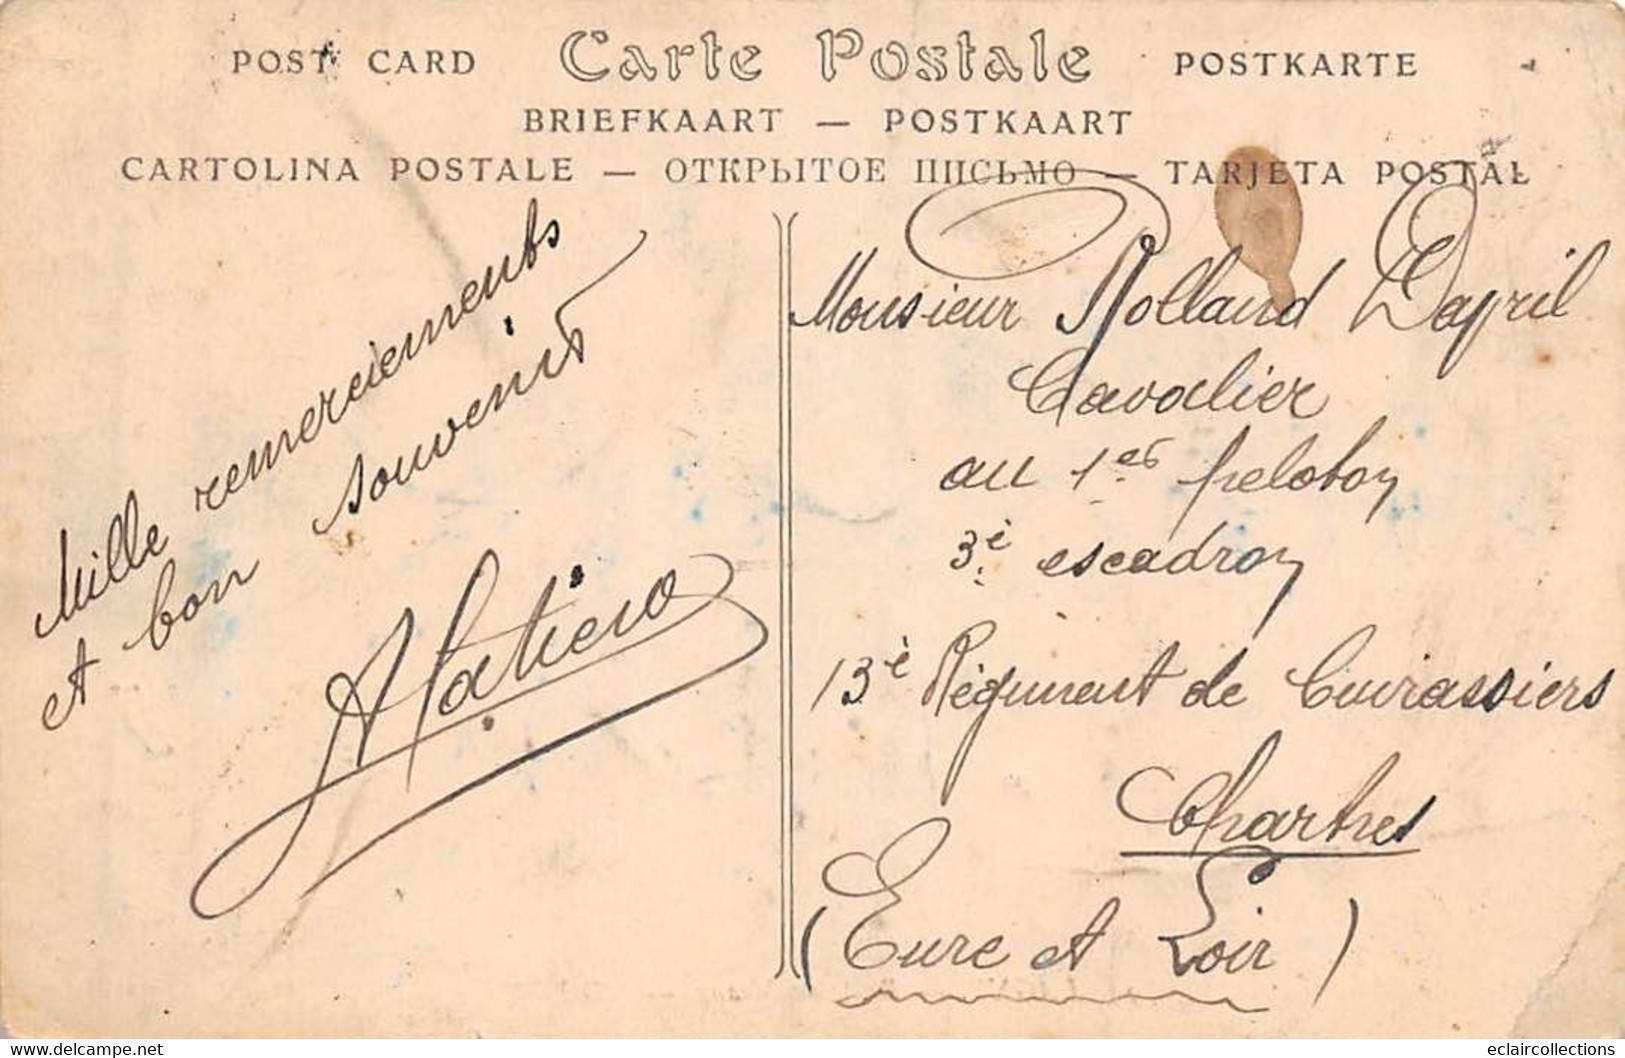 POST CARD Carte Postale POSTKARTE
BRIEFKAART — POSTKAART
CARTOLINA POSTALE — ОТКРЫТОЕ ПИСЬМО — TARJETA POSTAL
Mille remerciements
et bon souvenir
Monsieur Rolland Dapril
Cavalier
au 1er peloton
3è escadron
13è Régiment de Cuirassiers
Chartres
(Eure et Loir)
www.delcampe.net
eclaircollections